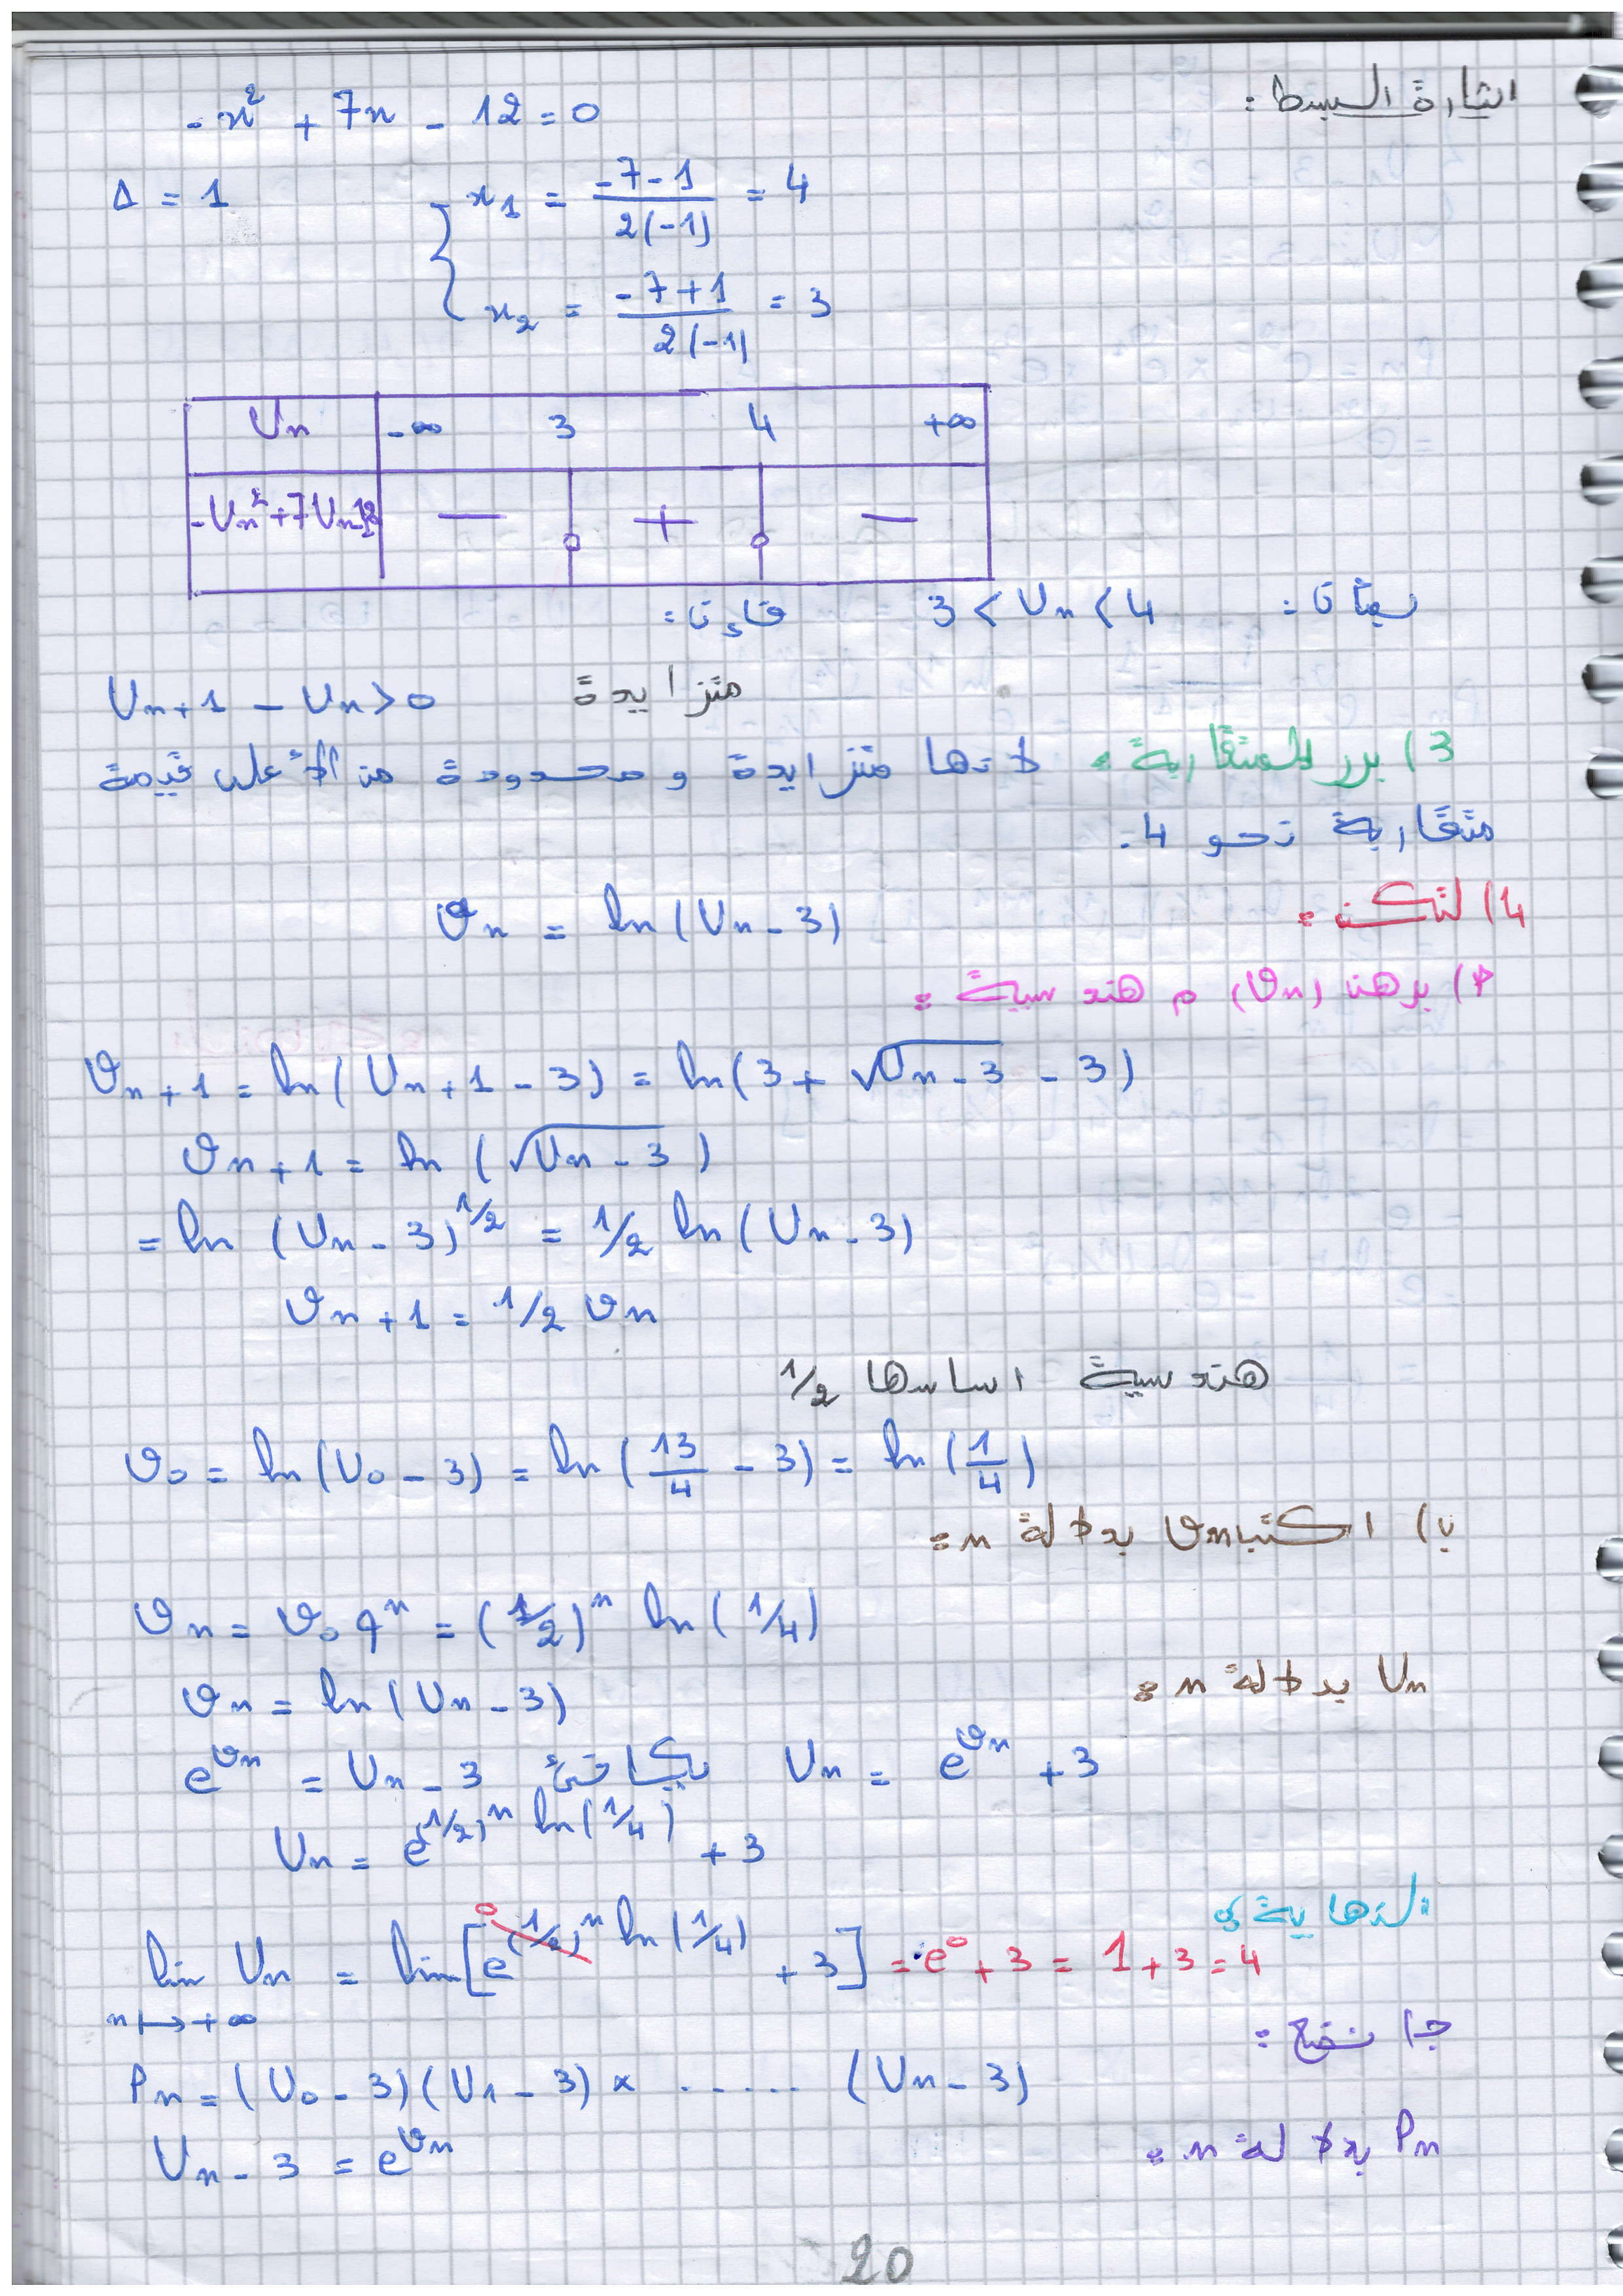 اشارة البسط :
-x² + 7x - 12 = 0
Δ = 1
x₁ = (-7-1)/(2(-1)) = 4
x₂ = (-7+1)/(2(-1)) = 3
Uₙ -∞ 3 4 +∞
-Uₙ²+7Uₙ-12 — 0 + 0 —
بما أن : 3 < Uₙ < 4 فإن :
Uₙ₊₁ - Uₙ > 0 متزايدة
3) برر المتقاربة : لأنها متزايدة و محدودة من الأعلى قيمة
متقاربة نحو 4.
4) لتكن : 𝑣ₙ = ln(Uₙ - 3)
أ) برهن (𝑣ₙ) م هندسية :
𝑣ₙ₊₁ = ln(Uₙ₊₁ - 3) = ln(3 + √(Uₙ-3) - 3)
𝑣ₙ₊₁ = ln(√(Uₙ-3))
= ln(Uₙ - 3)^(1/2) = 1/2 ln(Uₙ - 3)
𝑣ₙ₊₁ = 1/2 𝑣ₙ
هندسية اساسها 1/2
𝑣₀ = ln(U₀ - 3) = ln(13/4 - 3) = ln(1/4)
ب) اكتب 𝑣ₙ بدلالة n :
𝑣ₙ = 𝑣₀ qⁿ = (1/2)ⁿ ln(1/4)
Uₙ بدلالة n :
𝑣ₙ = ln(Uₙ - 3)
e^(𝑣ₙ) = Uₙ - 3 يكافئ Uₙ = e^(𝑣ₙ) + 3
Uₙ = e^((1/2)ⁿ ln(1/4)) + 3
النهاية :
lim Uₙ = lim[e^((1/2)ⁿ ln(1/4)) + 3] = e⁰ + 3 = 1 + 3 = 4
n ↦ +∞
ج) نضع :
Pₙ = (U₀ - 3)(U₁ - 3) × ...... (Uₙ - 3)
Pₙ بدلالة n :
Uₙ - 3 = e^(𝑣ₙ)
20